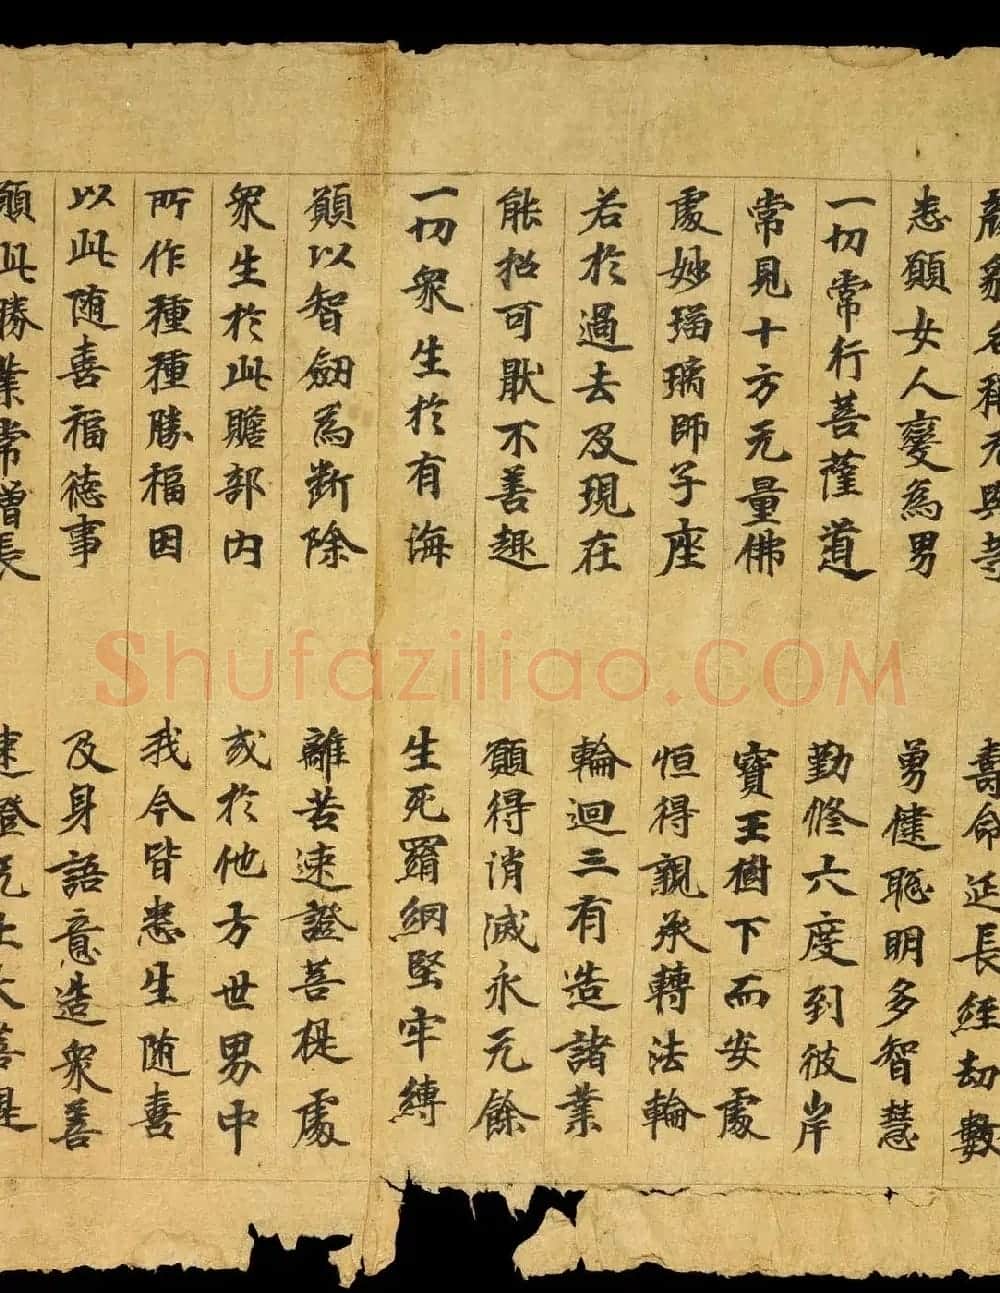 顏皃名稱无與等 壽命延長經劫數
悉願女人變為男 勇健聰明多智慧
一切常行菩薩道 勤修六度到彼岸
常見十方无量佛 寶王樹下而安處
處妙瑠璃師子座 恒得親承轉法輪
若於過去及現在 輪迴三有造諸業
能招可猒不善趣 願得消滅永无餘
一切衆生於有海 生死羂網堅牢縛
願以智劒為斷除 離苦速證菩提處
衆生於此贍部内 或於他方世界中
所作種種勝福因 我今皆悉生随喜
以此随喜福德事 及身語意造衆善
願此勝業常增長 速證无上大菩提
Shufaziliao.COM